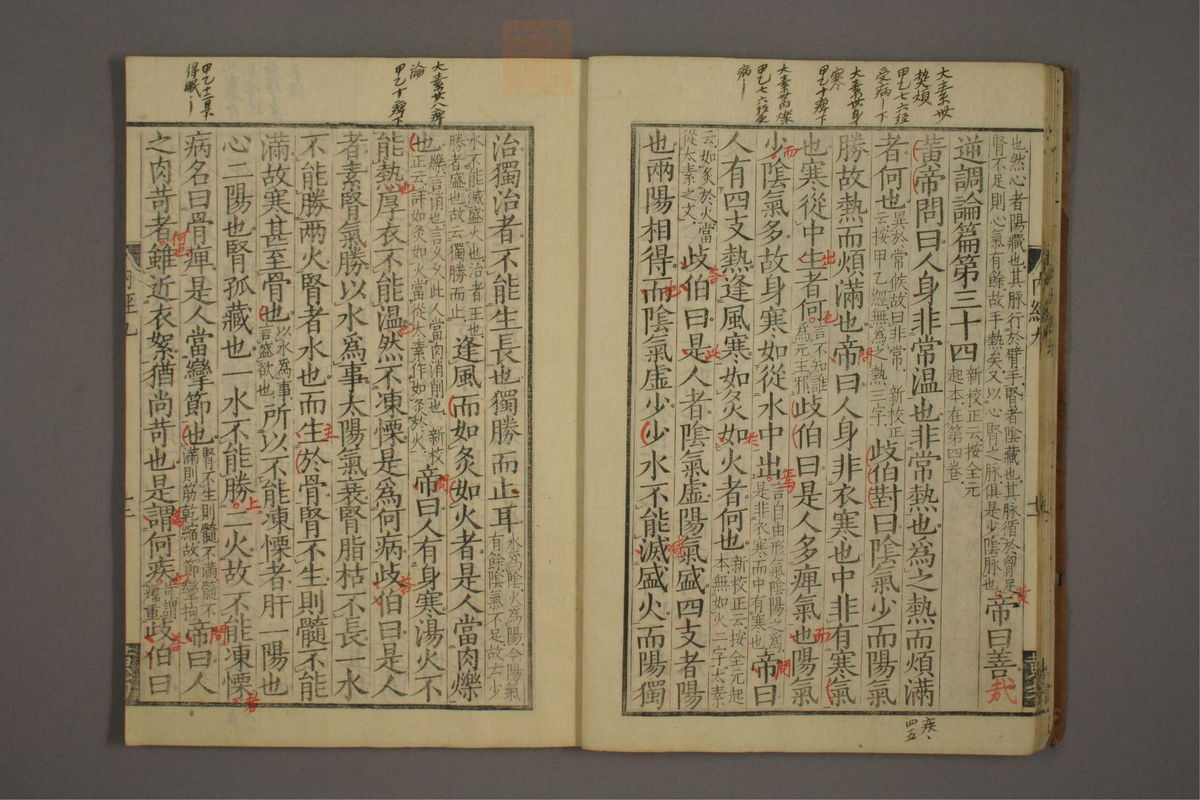 大素卅
熱煩
甲乙七六經
受病一下
大素卅身
寒
甲乙十痺下
大素卅肉爍
甲乙七六經受
病一
也然心者陽藏也其脉行於臂手腎者陰藏也其脉循於胷足
腎不足則心氣有餘故手熱矣又以心腎之脉俱是少陰脉也
帝曰善哉
逆調論篇第三十四
新校正云按全元
起本在第四卷
黃帝問曰人身非常温也非常熱也為之熱而煩滿
者何也
異於常候故曰非常　新校正
云按甲乙經無為之熱三字
歧伯對曰陰氣少而陽氣
勝故熱而煩滿也帝曰人身非衣寒也中非有寒氣
也寒從中生者何
言不知誰
為元主邪
歧伯曰是人多痺氣也陽氣
少陰氣多故身寒如從水中出
言自由形氣陰陽之為
是非衣寒而中有寒也
帝曰
人有四支熱逢風寒如炙如火者何也
新校正云按全元起
本無如火二字太素
云如炙於火當
從太素之文
歧伯曰是人者陰氣虛陽氣盛四支者陽
也兩陽相得而陰氣虛少少水不能滅盛火而陽獨
疾
四五
内經九
大素廿八痺
論
甲乙十痺下
甲乙十二目不
得眠一
治獨治者不能生長也獨勝而止耳
水為陰火為陽今陽氣
有餘陰氣不足故云少
水不能滅盛火也治者王也
勝者盛也故云獨勝而止
逢風而如炙如火者是人當肉爍
也
爍言消也言久久此人當肉消削也　新校
正云詳如炙如火當從太素作如炙於火
帝曰人有身寒湯火不
能熱厚衣不能温然不凍慄是為何病歧伯曰是人
者素腎氣勝以水為事太陽氣衰腎脂枯不長一水
不能勝兩火腎者水也而生於骨腎不生則髓不能
滿故寒甚至骨也
以水為事
言盛欲也
所以不能凍慄者肝一陽也
心二陽也腎孤藏也一水不能勝二火故不能凍慄
病名曰骨痺是人當攣節也
腎不生則髓不滿髓不
滿則筋乾縮故節攣拘
帝曰人
之肉苛者雖近衣絮猶尚苛也是謂何疾
苛謂
𤸷重
歧伯曰